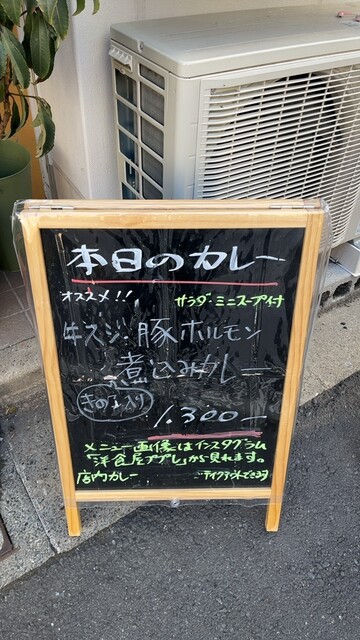 本日のカレー
オススメ!!
サラダ・ミニスープ付
牛スジ・豚ホルモン
煮込みカレー
きのこ入り
1,300ー
メニュー画像はインスタグラム
「洋食屋ププレ」から見れます。
店内カレー
テイクアウトできます